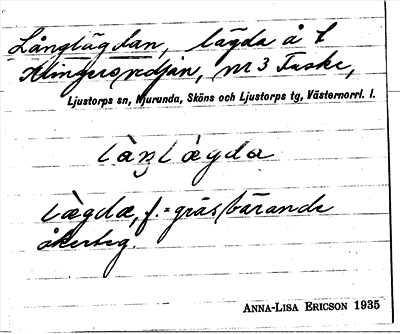 Långlägdan, lägda å t
Klingerondjän, nr 3 Tuske,
Ljustorps sn, Njurunda, Sköns och Ljustorps tg, Västernorrl. l.
làŋlægda
lægda, f. = gräsbärande
åkerteg.
ANNA-LISA ERICSON 1935